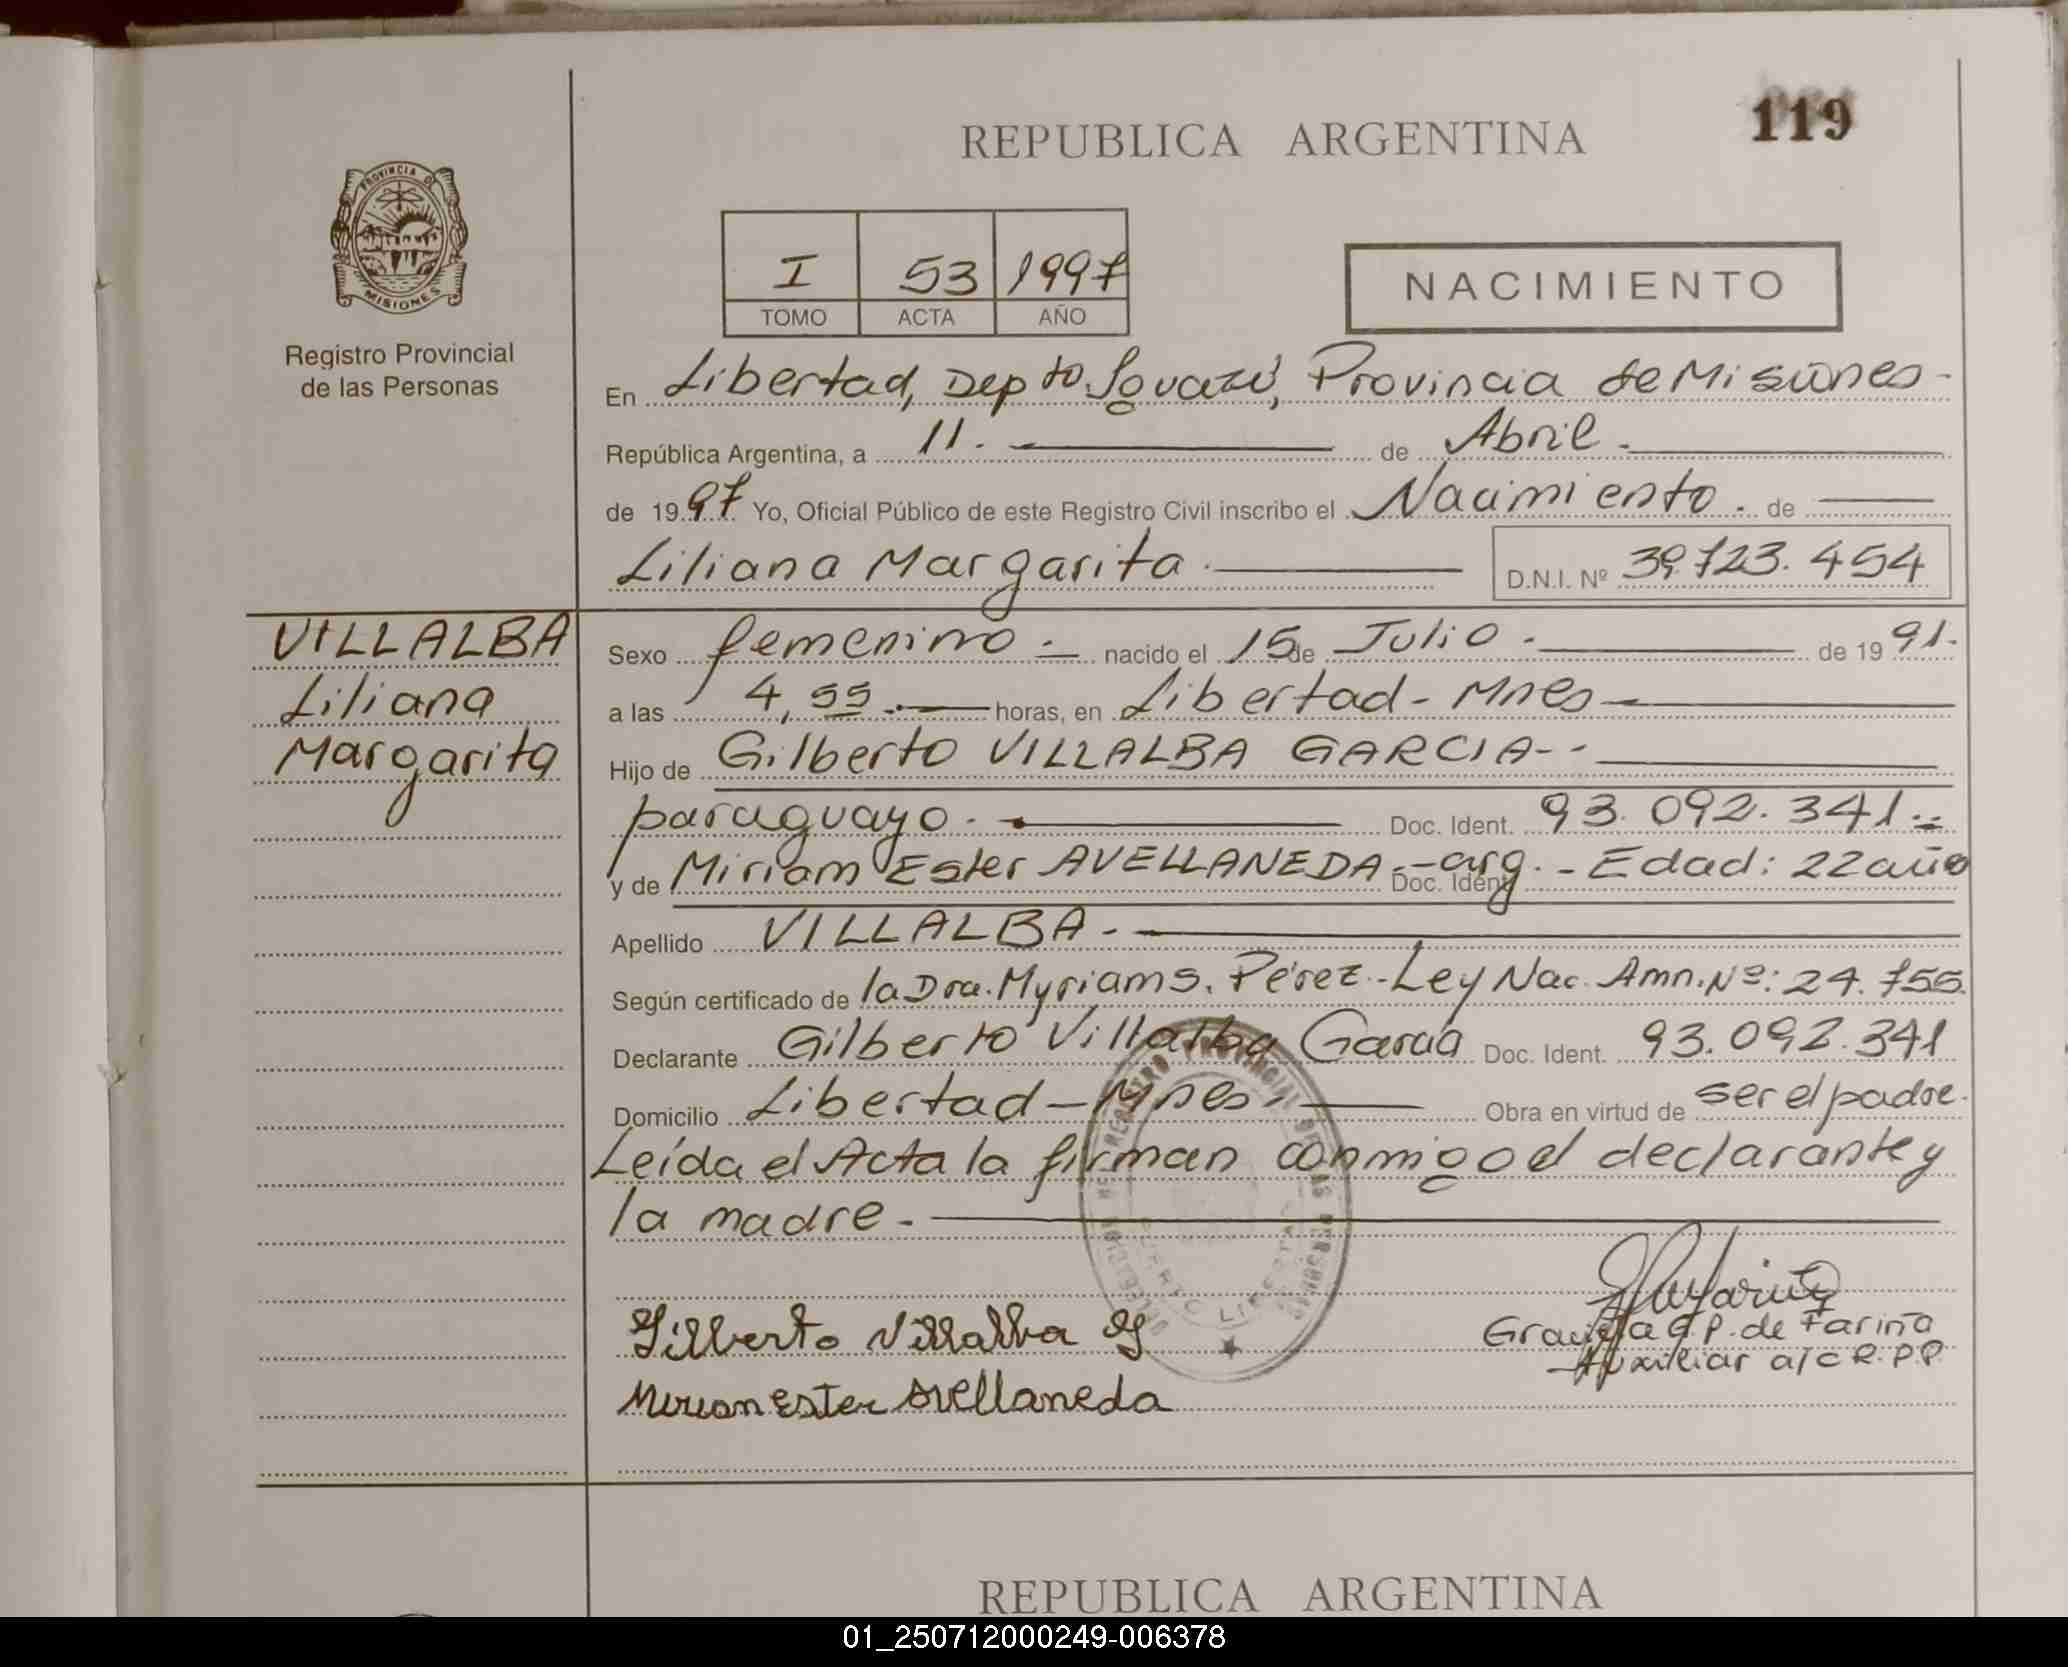 119
REPUBLICA ARGENTINA
PROVINCIA DE
MISIONES
Registro Provincial
de las Personas
I 53 1997
TOMO ACTA AÑO
NACIMIENTO
En Libertad, Depto Iguazú, Provincia de Misiones-
República Argentina, a 11. de Abril.
de 1997 Yo, Oficial Público de este Registro Civil inscribo el Nacimiento. de
Liliana Margarita. D.N.I. Nº 39.723.454
VILLALBA
Liliana
Margarita
Sexo femenino.- nacido el 15 de Julio. de 1991.
a las 4,55.- horas, en Libertad-Mnes-
Hijo de Gilberto VILLALBA GARCIA--
paraguayo. Doc. Ident. 93.092.341.-
y de Miriam Ester AVELLANEDA.-arg.- Doc. Ident. Edad: 22 años
Apellido VILLALBA.-
Según certificado de la Dra. Myriam S. Pérez.-Ley Nac. Amn. Nº: 24.755.
Declarante Gilberto Villalba García Doc. Ident. 93.092.341
Domicilio Libertad-Mnes. Obra en virtud de ser el padre.
Leída el Acta la firman conmigo el declarante y
la madre.-
Gilberto Villalba G
Mirian Ester Avellaneda
Graciela G.P. de Fariña
Auxiliar a/c R.P.P.
PUERTO LIBERTAD
REPUBLICA ARGENTINA
01_250712000249-006378